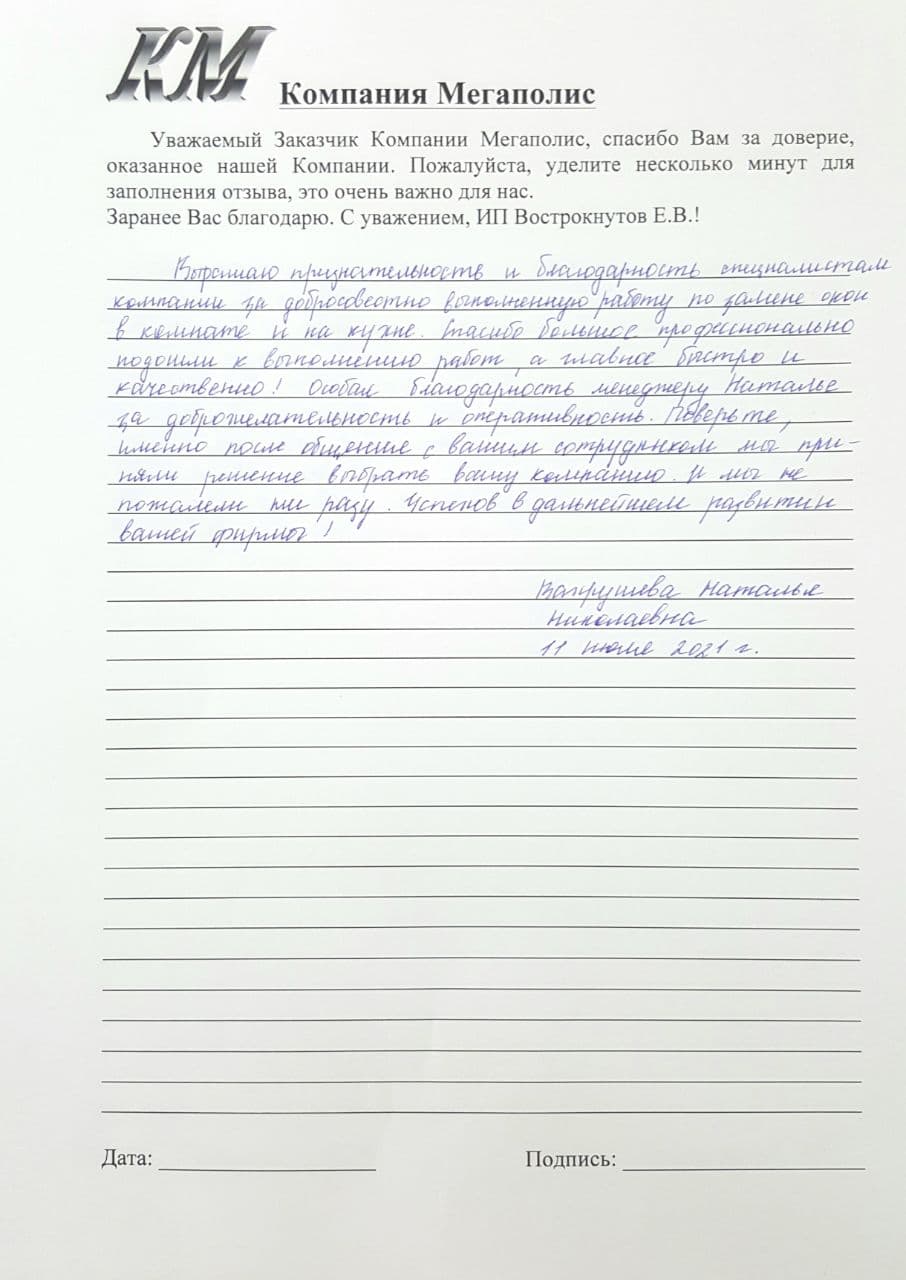 КМ
Компания Мегаполис
Уважаемый Заказчик Компании Мегаполис, спасибо Вам за доверие,
оказанное нашей Компании. Пожалуйста, уделите несколько минут для
заполнения отзыва, это очень важно для нас.
Заранее Вас благодарю. С уважением, ИП Вострокнутов Е.В.!
Выражаю признательность и благодарность специалистам
компании за добросовестно выполненную работу по замене окон
в комнате и на кухне. Спасибо большое, профессионально
подошли к выполнению работ, а главное быстро и
качественно! Особая благодарность менеджеру Наталье
за доброжелательность и оперативность. Поверьте,
именно после общение с вашим сотрудником мы при-
няли решение выбрать вашу компанию. И мы не
пожалели ни разу. Успехов в дальнейшем развитии
вашей фирмы!
Вахрушева Наталья
Николаевна
11 июля 2021 г.
Дата:
Подпись: